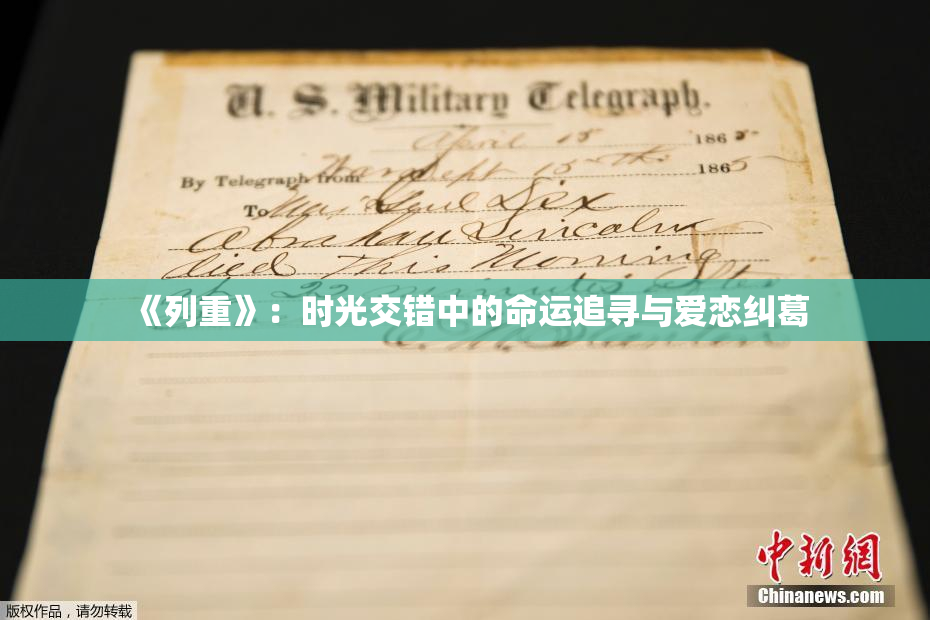 U. S. Military Telegraph.
April 15 1865
By Telegraph from War Dept 15th 1865
To Maj Genl Dix
Abraham Lincoln
died This Morning
at 22 minutes after
《列重》：时光交错中的命运追寻与爱恋纠葛
E. M. Stanton
中新网
Chinanews.com
版权作品，请勿转载